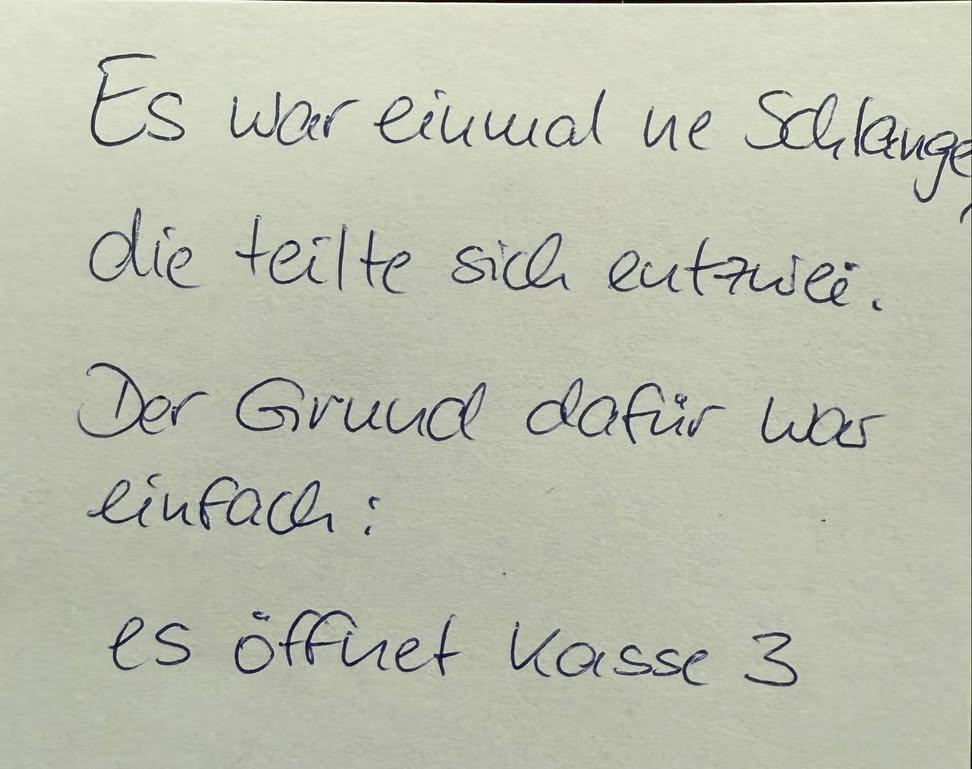 Es war einmal ne Schlange,
die teilte sich entzwei.
Der Grund dafür war
einfach:
es öffnet Kasse 3